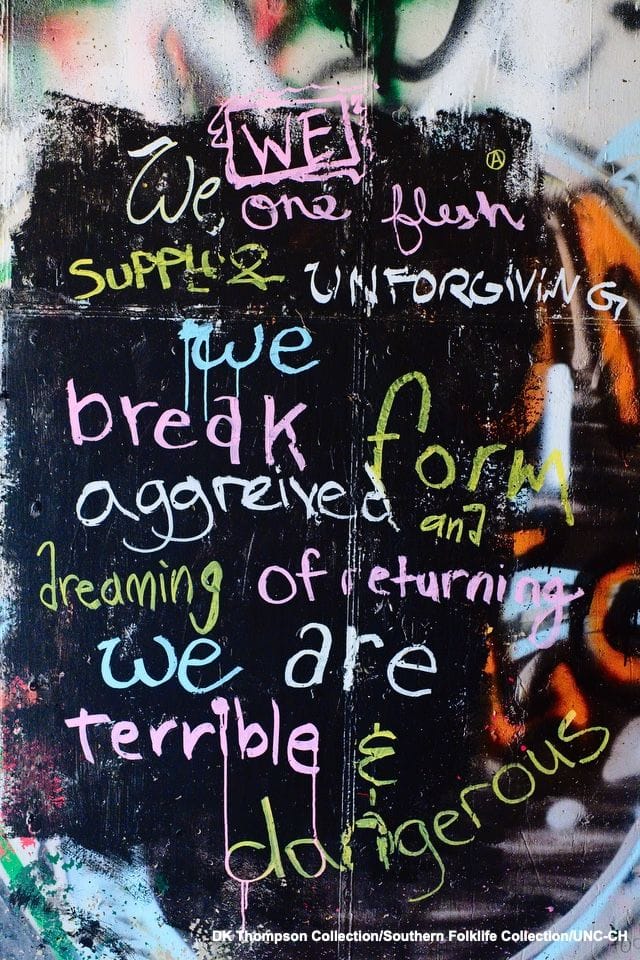 WE
We, one flesh
SUPPLE & UNFORGIVING
we
break form
aggreived and
dreaming of returning
we are
terrible &
dangerous
DK Thompson Collection/Southern Folklife Collection/UNC-CH